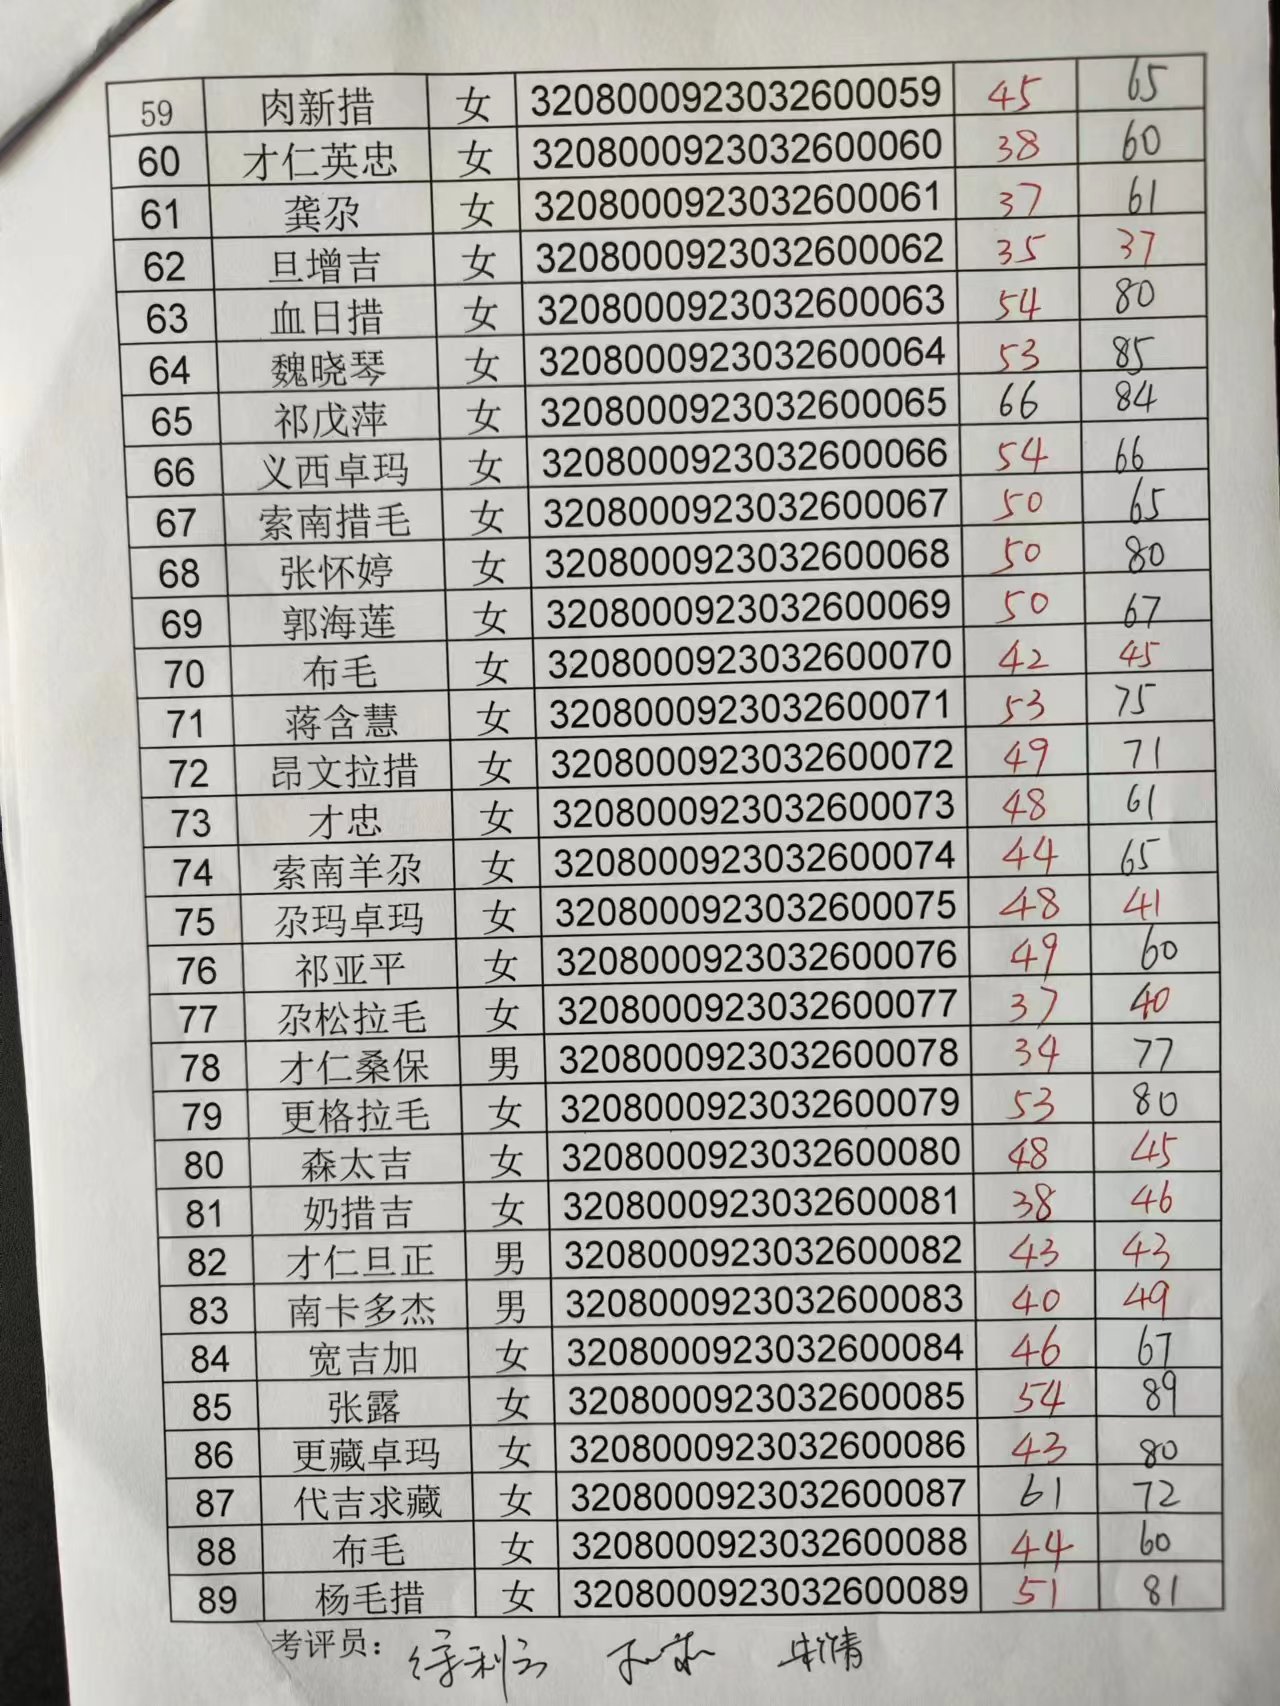 59 肉新措 女 3208000923032600059 45 65
60 才仁英忠 女 3208000923032600060 38 60
61 龚尕 女 3208000923032600061 37 61
62 旦增吉 女 3208000923032600062 35 37
63 血日措 女 3208000923032600063 54 80
64 魏晓琴 女 3208000923032600064 53 85
65 祁戊萍 女 3208000923032600065 66 84
66 义西卓玛 女 3208000923032600066 54 66
67 索南措毛 女 3208000923032600067 50 65
68 张怀婷 女 3208000923032600068 50 80
69 郭海莲 女 3208000923032600069 50 67
70 布毛 女 3208000923032600070 42 45
71 蒋含慧 女 3208000923032600071 53 75
72 昂文拉措 女 3208000923032600072 49 71
73 才忠 女 3208000923032600073 48 61
74 索南羊尕 女 3208000923032600074 44 65
75 尕玛卓玛 女 3208000923032600075 48 41
76 祁亚平 女 3208000923032600076 49 60
77 尕松拉毛 女 3208000923032600077 37 40
78 才仁桑保 男 3208000923032600078 34 77
79 更格拉毛 女 3208000923032600079 53 80
80 森太吉 女 3208000923032600080 48 45
81 奶措吉 女 3208000923032600081 38 46
82 才仁旦正 男 3208000923032600082 43 43
83 南卡多杰 男 3208000923032600083 40 49
84 宽吉加 女 3208000923032600084 46 67
85 张露 女 3208000923032600085 54 89
86 更藏卓玛 女 3208000923032600086 43 80
87 代吉求藏 女 3208000923032600087 61 72
88 布毛 女 3208000923032600088 44 60
89 杨毛措 女 3208000923032600089 51 81
考评员：